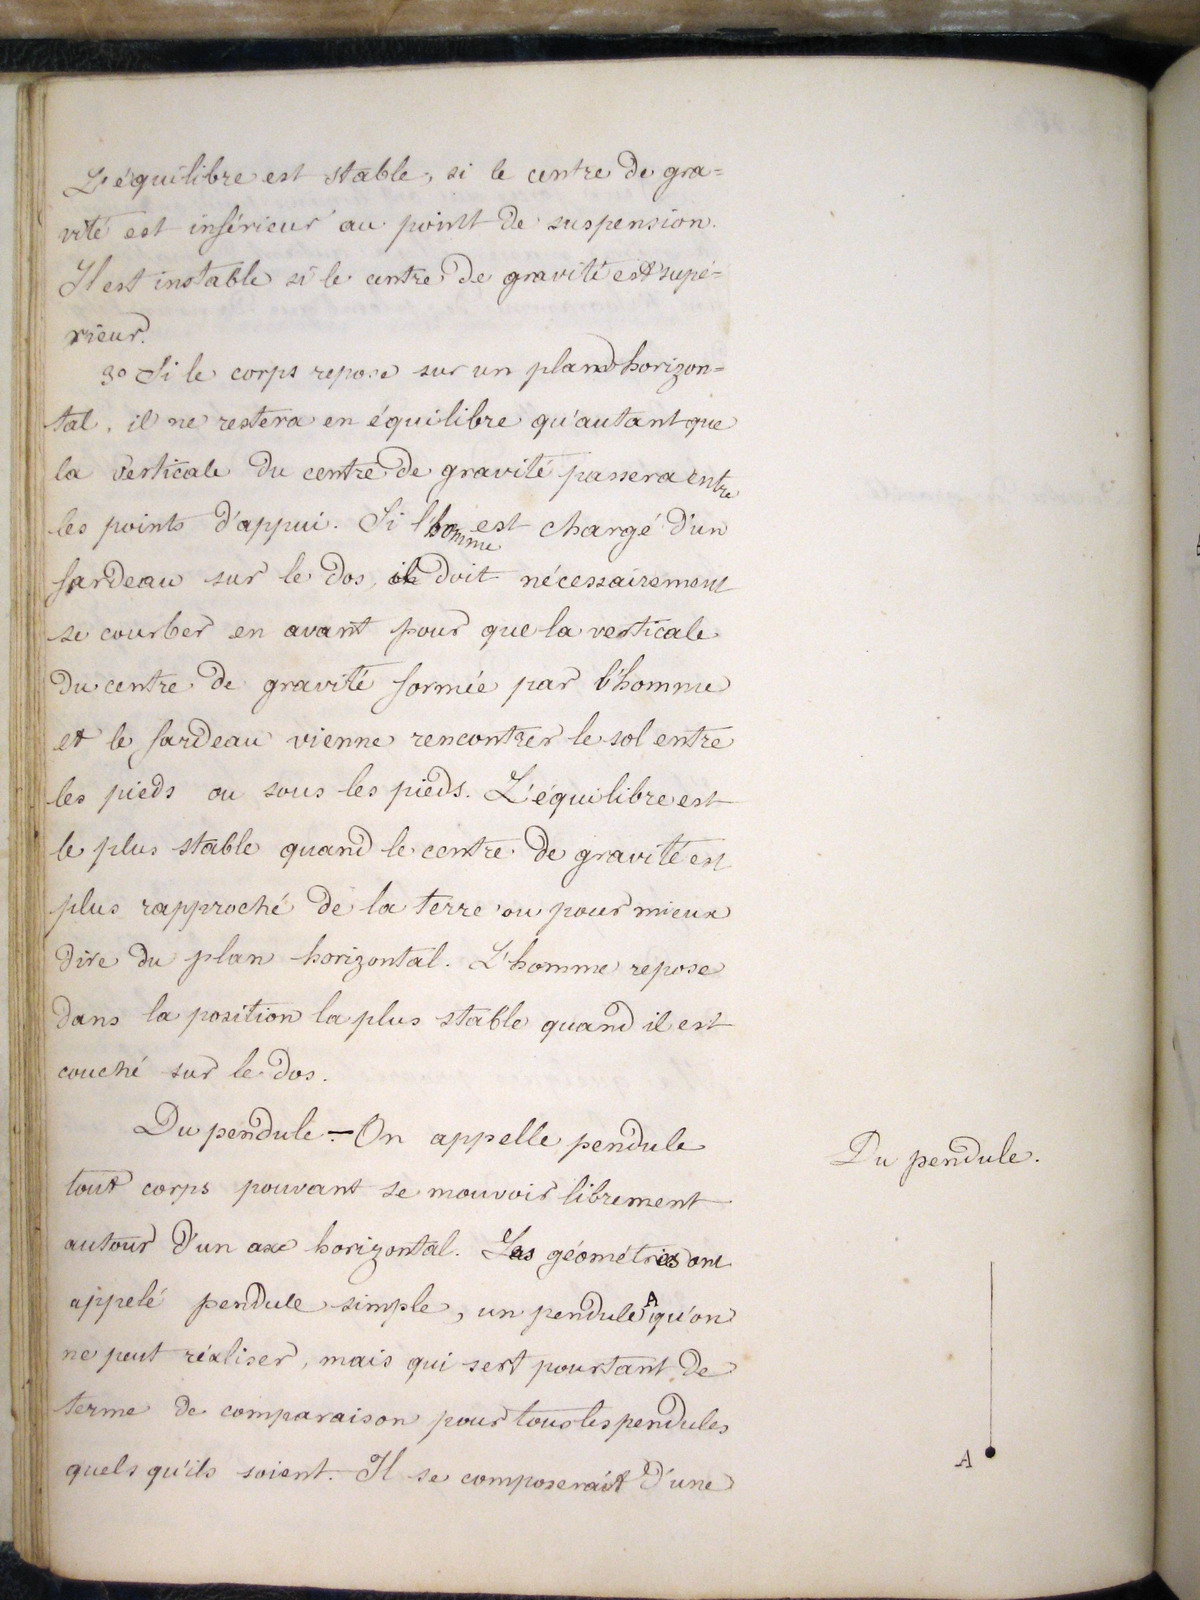 L'équilibre est stable, si le centre de gra=
vité est inférieur au point de suspension.
Il est instable si le centre de gravité est supé=
rieur.
3o Si le corps repose sur un plan horizon=
tal, il ne restera en équilibre qu'autant que
la verticale du centre de gravité passera entre
les points d'appui. Si l'homme est chargé d'un
fardeau sur le dos, il doit nécessairement
se courber en avant pour que la verticale
du centre de gravité formée par l'homme
et le fardeau vienne rencontrer le sol entre
les pieds ou sous les pieds. L'équilibre est
le plus stable quand le centre de gravité est
plus rapproché de la terre ou pour mieux
dire du plan horizontal. L'homme repose
dans la position la plus stable quand il est
couché sur le dos.
Du pendule. — On appelle pendule
tout corps pouvant se mouvoir librement
autour d'un axe horizontal. Les géomètres ont
appelé pendule simple, un pendule A qu'on
ne peut réaliser, mais qui sert pourtant de
terme de comparaison pour tous les pendules
quels qu'ils soient. Il se composerait d'une
Du pendule.
A